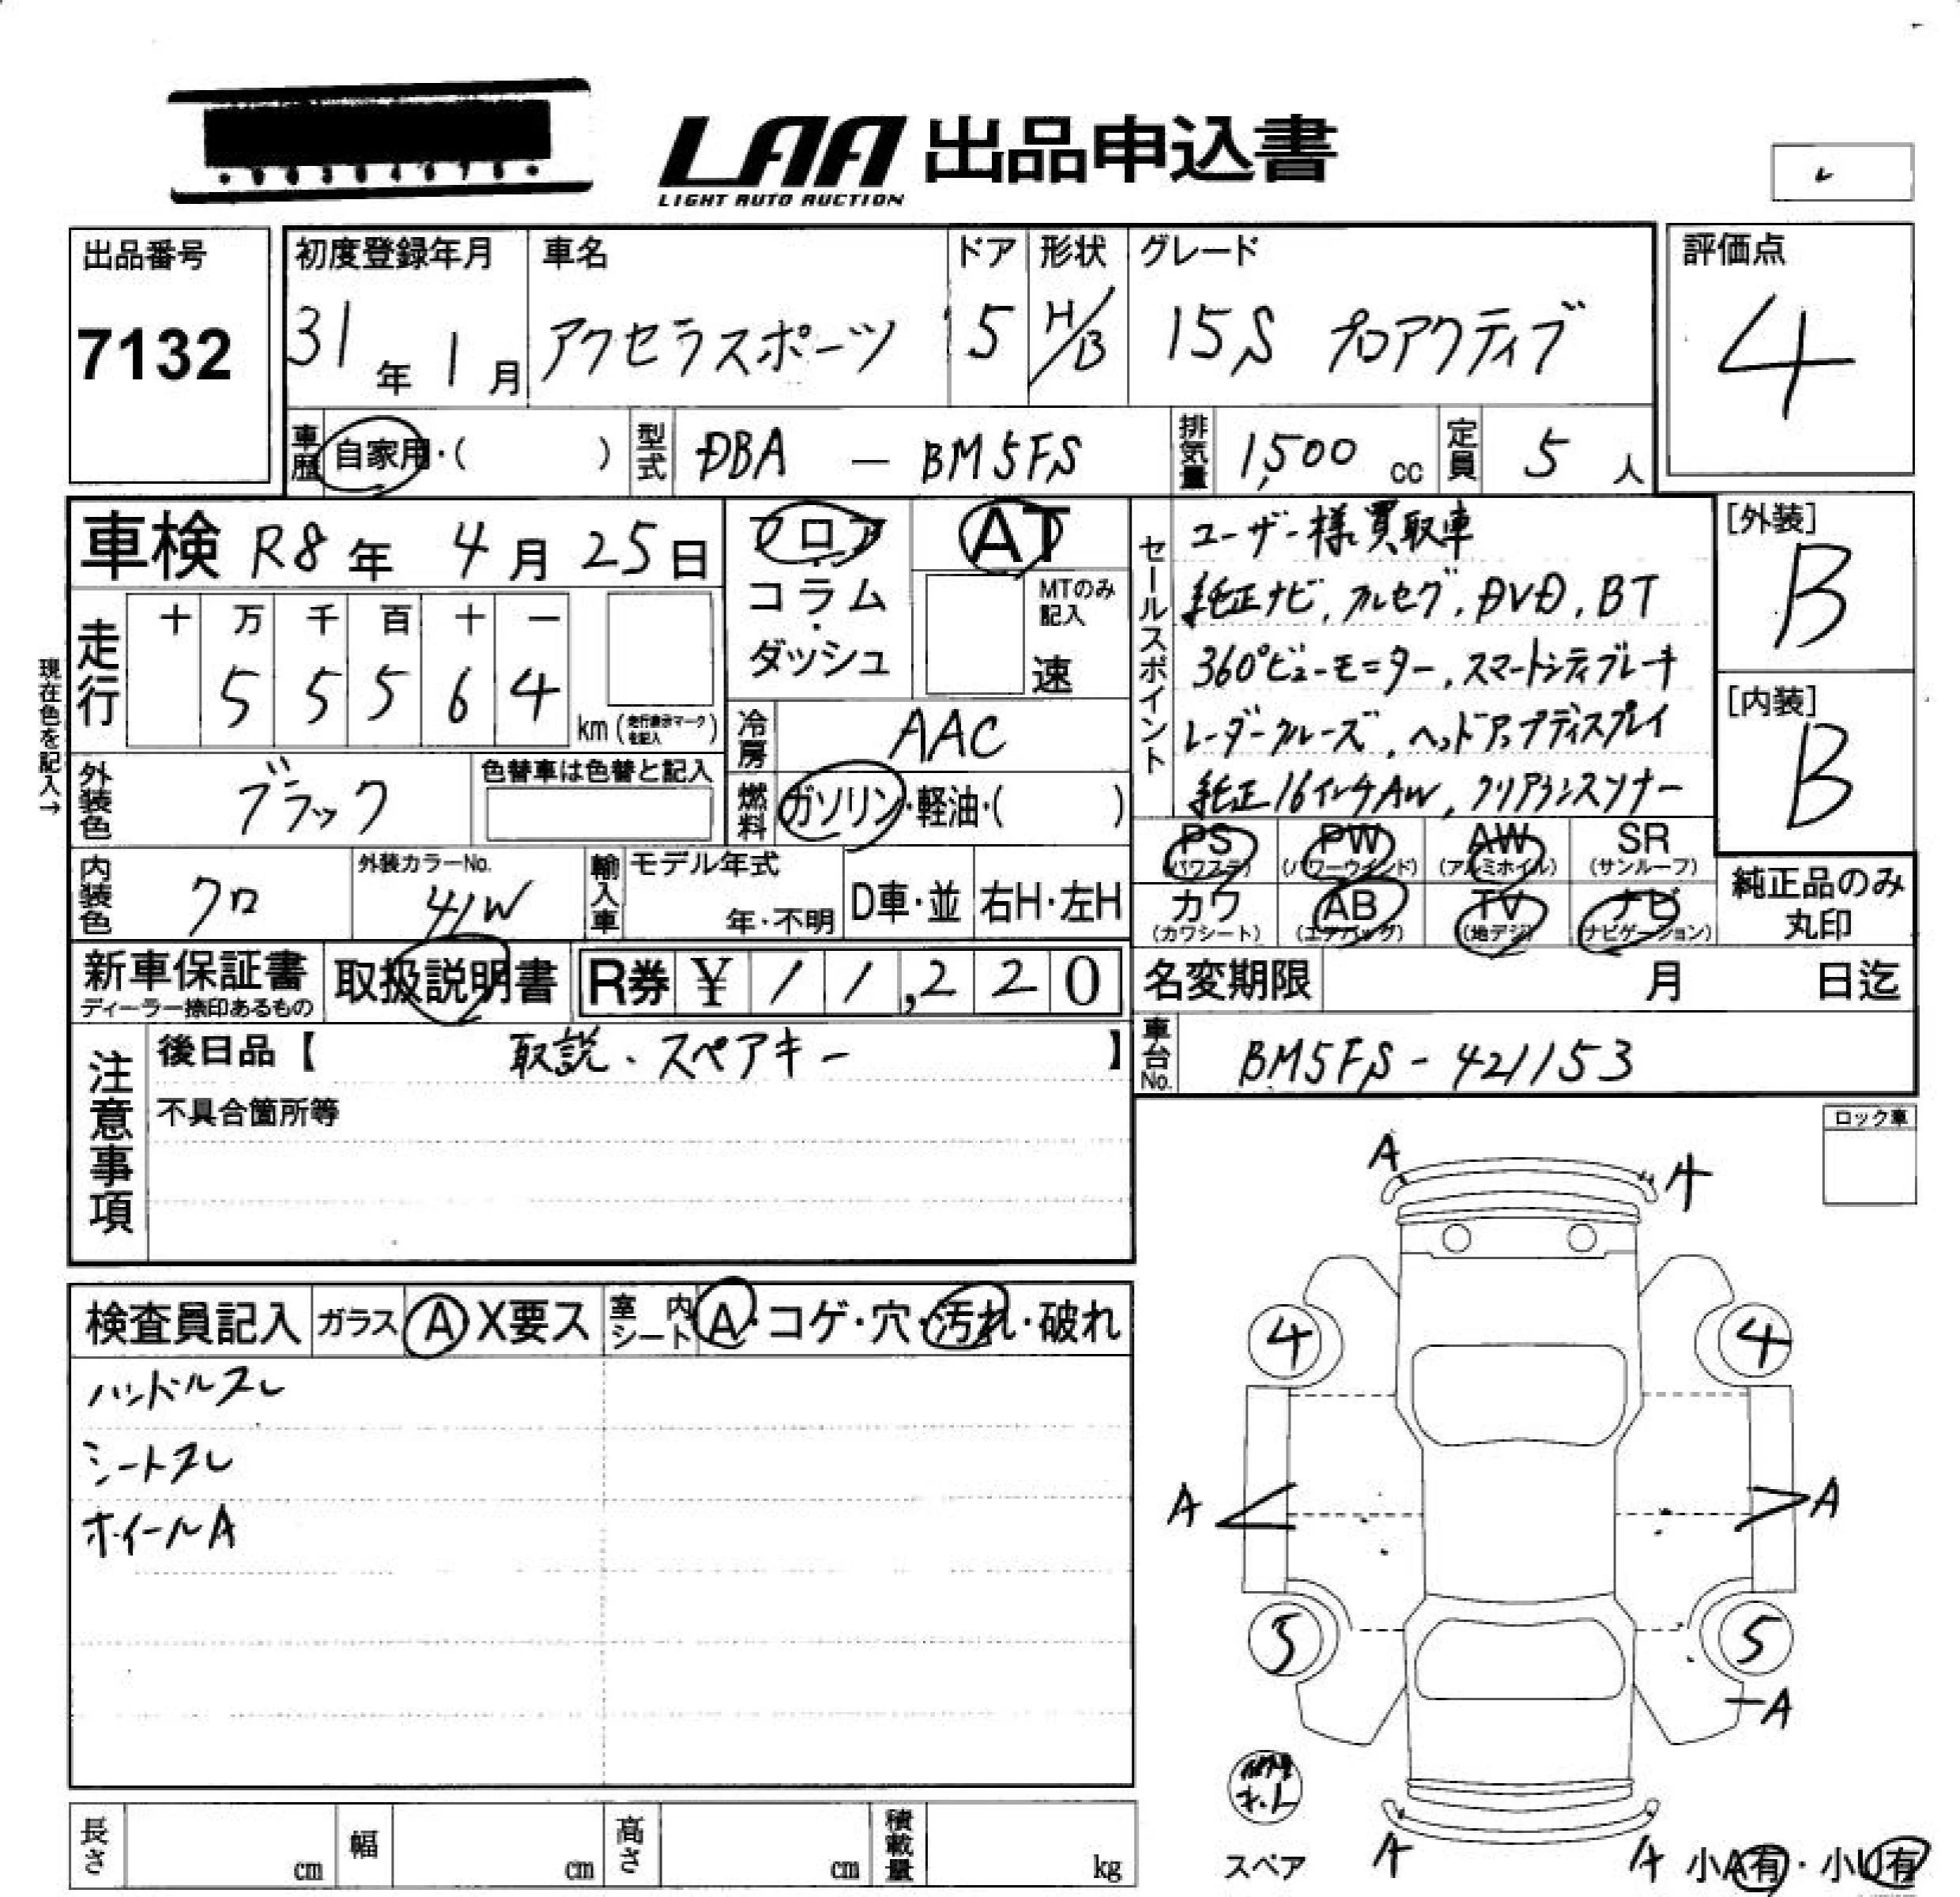 LAA 出品申込書
LIGHT AUTO AUCTION
出品番号
7132
初度登録年月
31年 1月
車名
アクセラスポーツ
ドア
5
形状
H/B
グレード
15S プロアクティブ
評価点
4
車歴 自家用・( )
型式 DBA - BM5FS
排気量 1,500 cc
定員 5 人
車検 R8年 4月 25日
フロア
コラム
・
ダッシュ
AT
MTのみ
記入
速
セールスポイント
ユーザー様買取車
純正ナビ, フルセグ, DVD, BT
360°ビューモニター, スマートシティブレーキ
レーダークルーズ, ヘッドアップディスプレイ
純正16インチAW, クリアランスソナー
[外装]
B
[内装]
B
現在色を記入→
走行
十 万 千 百 十 一
5 5 5 6 4
km (走行表示マークを記入)
冷房 AAC
燃料 ガソリン・軽油・( )
外装色 ブラック
色替車は色替と記入
内装色 クロ
外装カラーNo.
41W
輸入車
モデル年式
年・不明
D車・並
右H・左H
PS
(パワステ)
PW
(パワーウインド)
AW
(アルミホイル)
SR
(サンルーフ)
カワ
(カワシート)
AB
(エアバッグ)
TV
(地デジ)
ナビ
(ナビゲーション)
純正品のみ
丸印
新車保証書
ディーラー捺印あるもの
取扱説明書
R券 ¥ 11,220
名変期限 月 日迄
車台No. BM5FS-421153
注意事項
後日品【 取説、スペアキー 】
不具合箇所等
ロック車
検査員記入
ガラス A X要ス
室内シート A・コゲ・穴・汚れ・破れ
ハンドルスレ
シートスレ
ホイールA
A A
4 4
A A
5 5
A
スペア
A A
小A有・小U有
長さ cm
幅 cm
高さ cm
積載量 kg